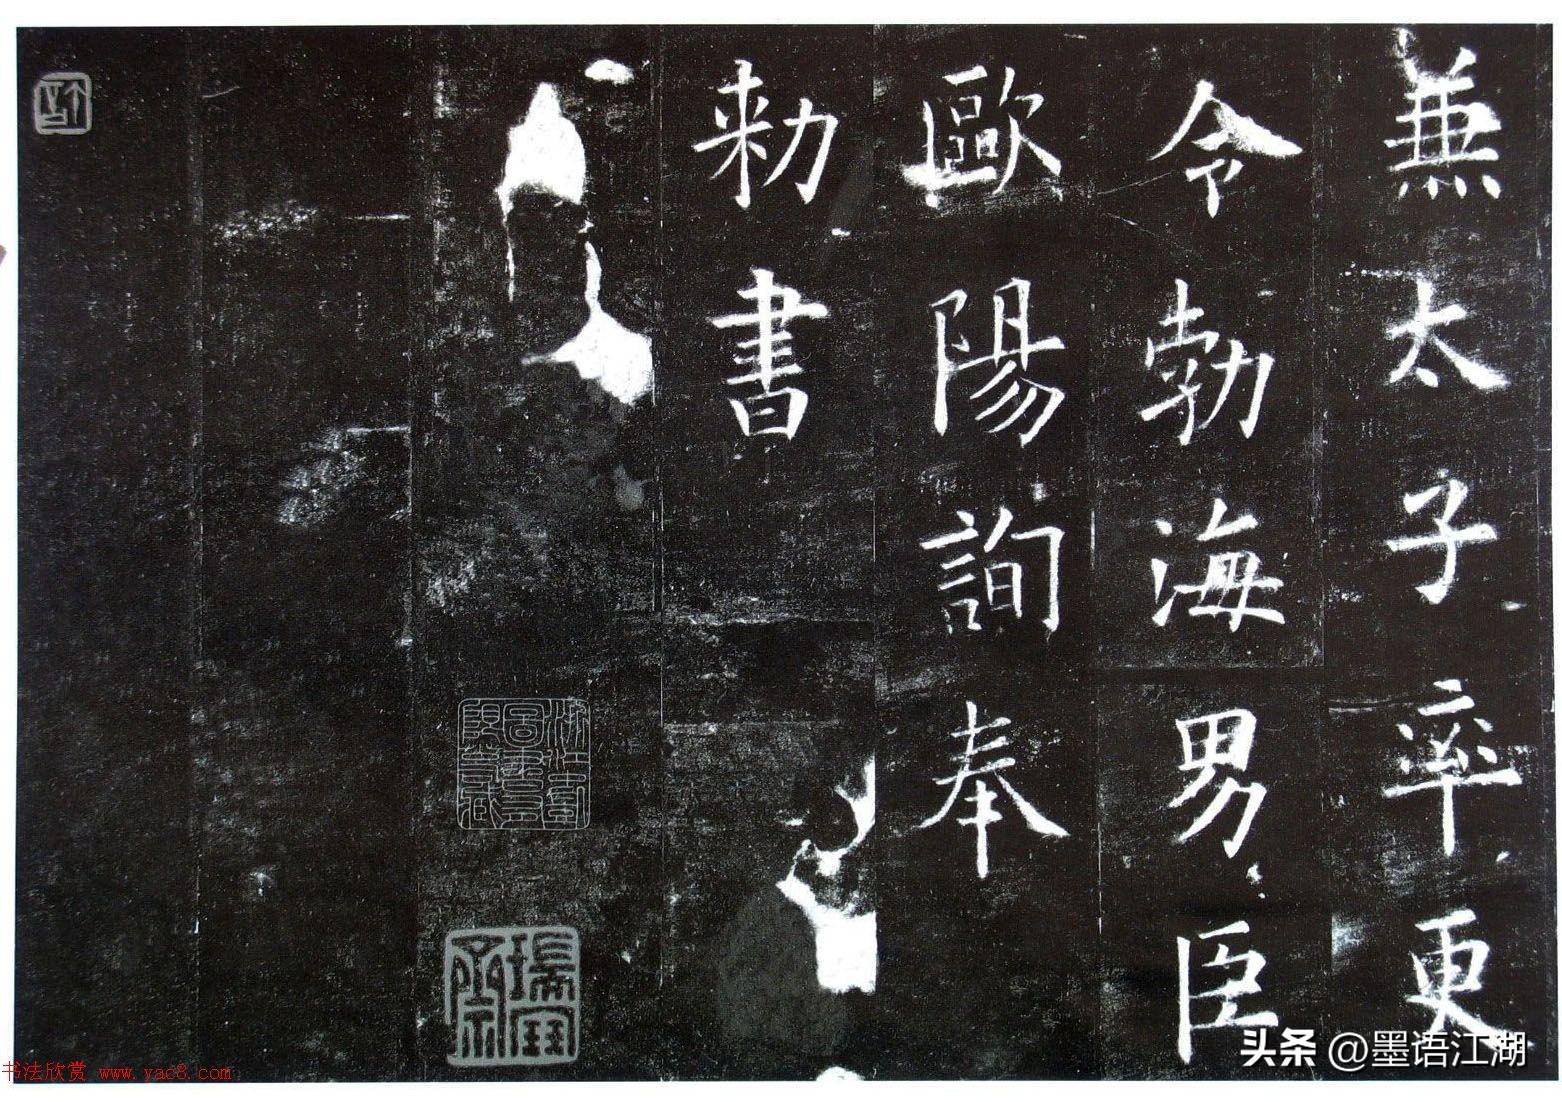 兼太子率更
令勃海男臣
歐陽詢奉
勅書
头条 @墨语江湖
书法欣赏 www.yac8.com